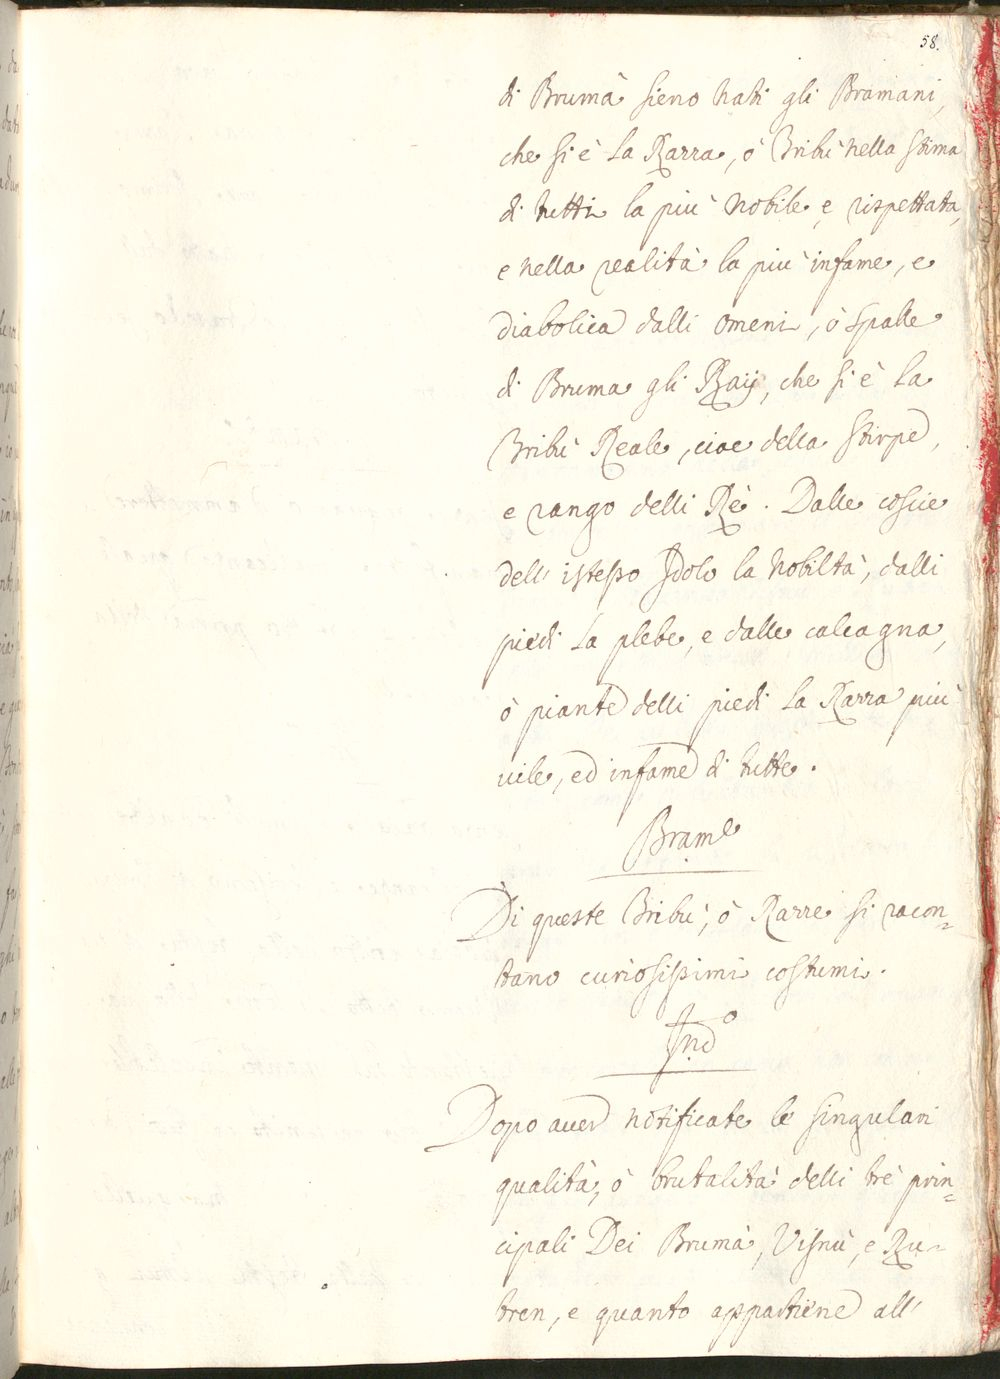 58.
di Brumà sieno nati gli Bramani,
che si è la Razza, ò Tribù nella stima
di tutti la più nobile, e rispettata,
e nella realità la più infame, e
diabolica dalli omeni, ò spalle
di Bruma gli Raij, che si è la
Tribù Reale, cioe della stirpe,
e rango delli Rè. Dalle coscie
dell' istesso Idolo la nobiltà, dalli
piedi la plebe, e dalle calcagna,
ò piante delli piedi la Razza più
vile, ed infame di tutte.
Brame
Di queste Tribù, ò Razze si racon=
tano curiosissimi costumi.
Ind.o
Dopo aver notificate le singulari
qualità, ò brutalità delli trè prin=
cipali Dei Brumà, Visnù, e Ru=
tren, e quanto appartiene all'